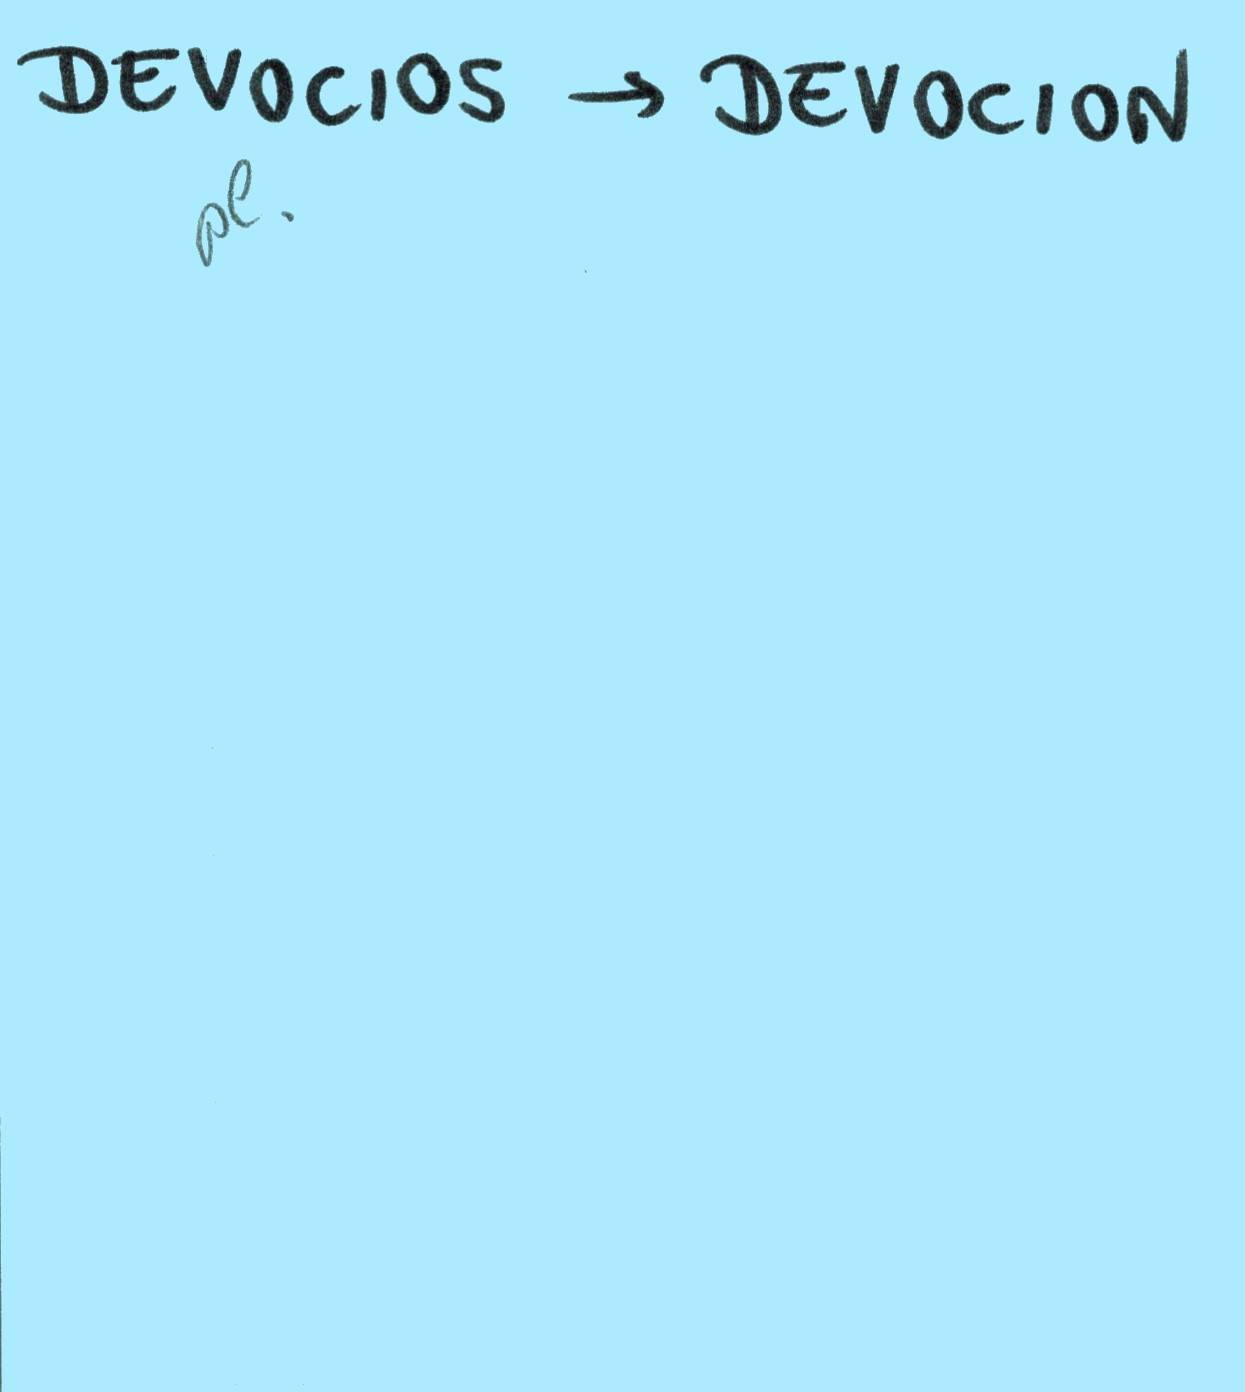 DEVOCIOS → DEVOCION
pl.